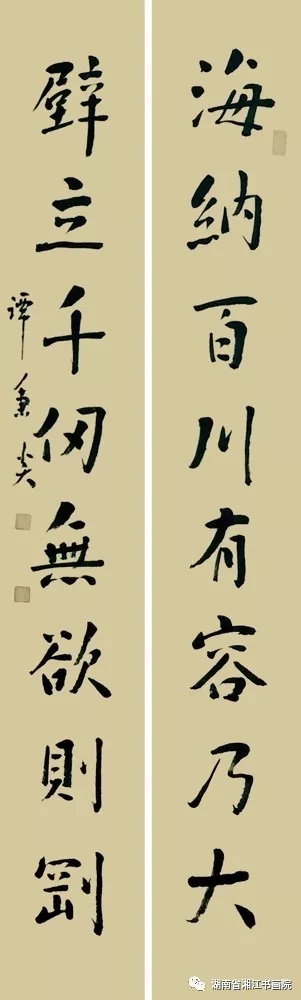 海納百川有容乃大
壁立千仞無欲則剛
譚秉炎
湖南省湘江书画院